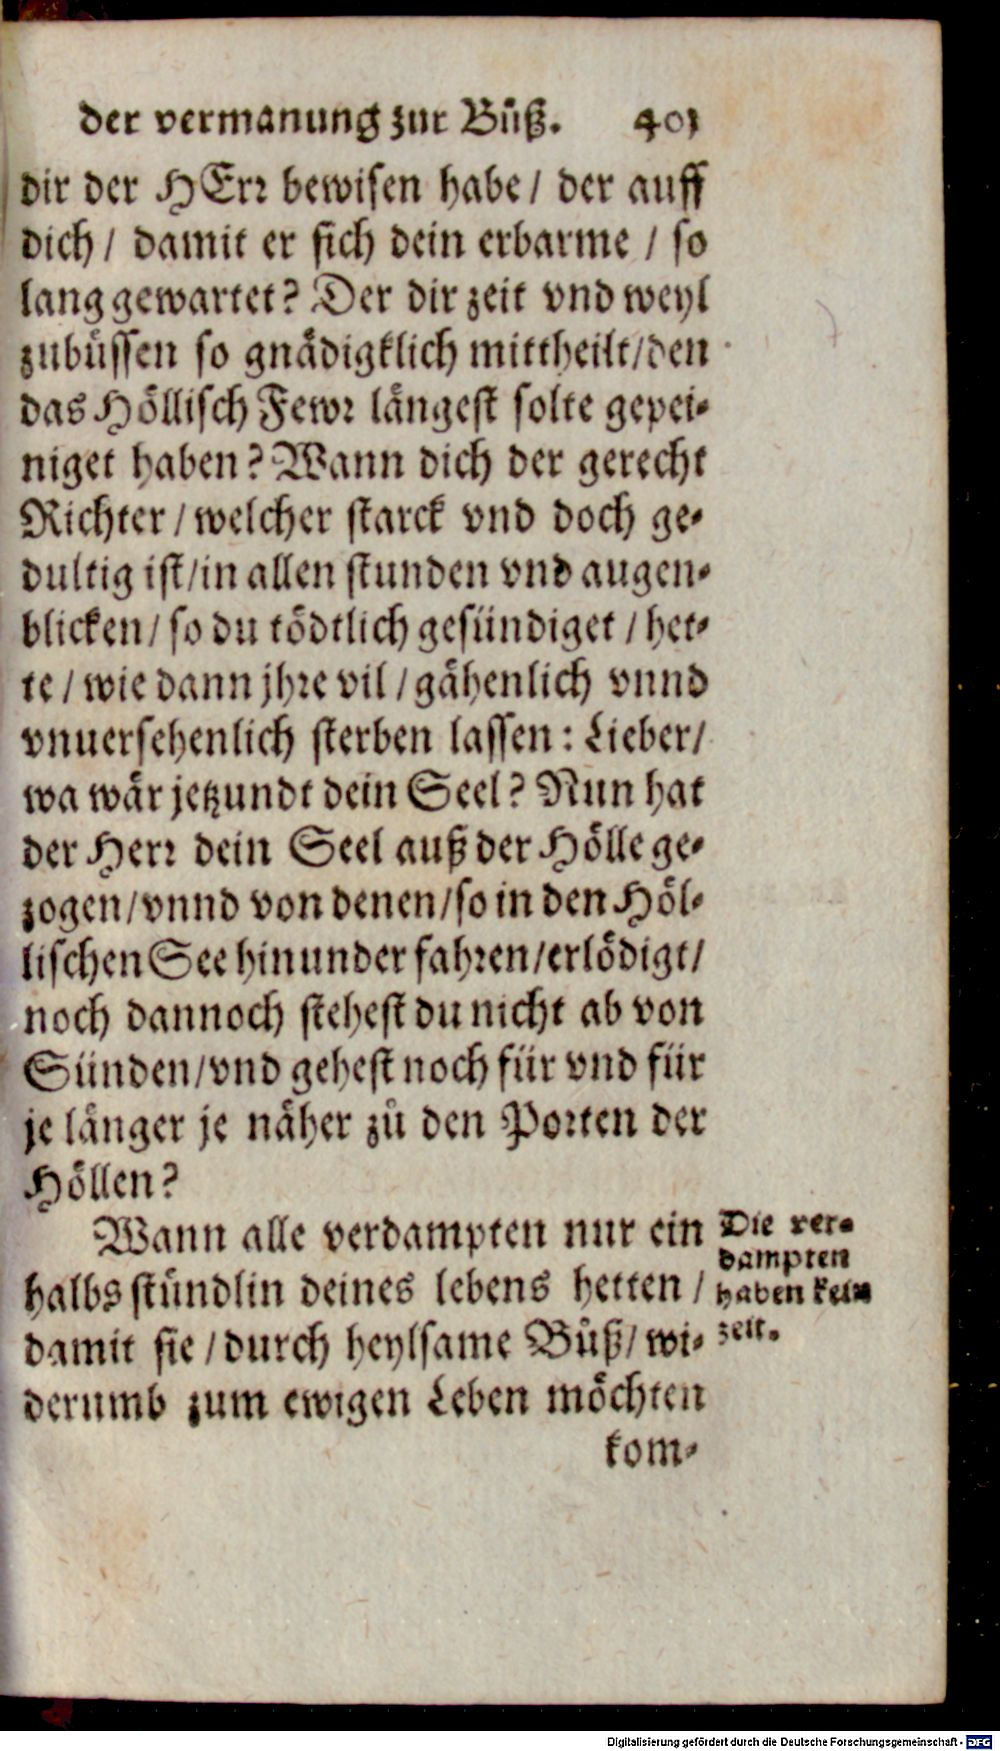 der vermanung zur Bůß. 401
dir der HErr bewisen habe / der auff
dich / damit er sich dein erbarme / so
lang gewartet? Der dir zeit vnd weyl
zubůssen so gnädigklich mittheilt/den
das Höllisch Fewr längest solte gepei-
niget haben? Wann dich der gerecht
Richter / welcher starck vnd doch ge-
dultig ist/in allen stunden vnd augen-
blicken/ so du tödtlich gesündiget / het-
te / wie dann jhre vil / gähenlich vnnd
vnuersehenlich sterben lassen: Lieber/
wa wär jetzundt dein Seel? Nun hat
der Herr dein Seel auß der Hölle ge-
zogen/vnnd von denen/so in den Höl-
lischen See hinunder fahren/erlödigt/
noch dannoch stehest du nicht ab von
Sünden/vnd gehest noch für vnd für
je länger je näher zů den Porten der
Höllen?
Wann alle verdampten nur ein
halbs stündlin deines lebens hetten /
damit sie / durch heylsame Bůß/ wi-
derumb zum ewigen Leben möchten
kom-
Die ver-
dampten
haben kein
zeit.
Digitalisierung gefördert durch die Deutsche Forschungsgemeinschaft - DFG